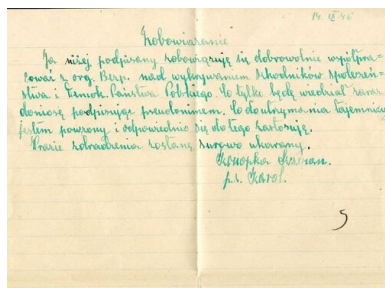 14 IX 45
Zobowiązanie
Ja niżej podpisany zobowiązuję się dobrowolnie współpra-
cować z org. Bezp. nad wykrywaniem szkodników społeczeń-
stwa i Demok. Państwa Polskiego. Co tylko będę wiedział zaraz
doniosę podpisując pseudonimem. Co do utrzymania tajemnicy
jestem powzony i odpowiednio się do tego zastosuję.
W razie zdradzenia zostanę surowo ukarany.
Konopka
ps. Karol.
5